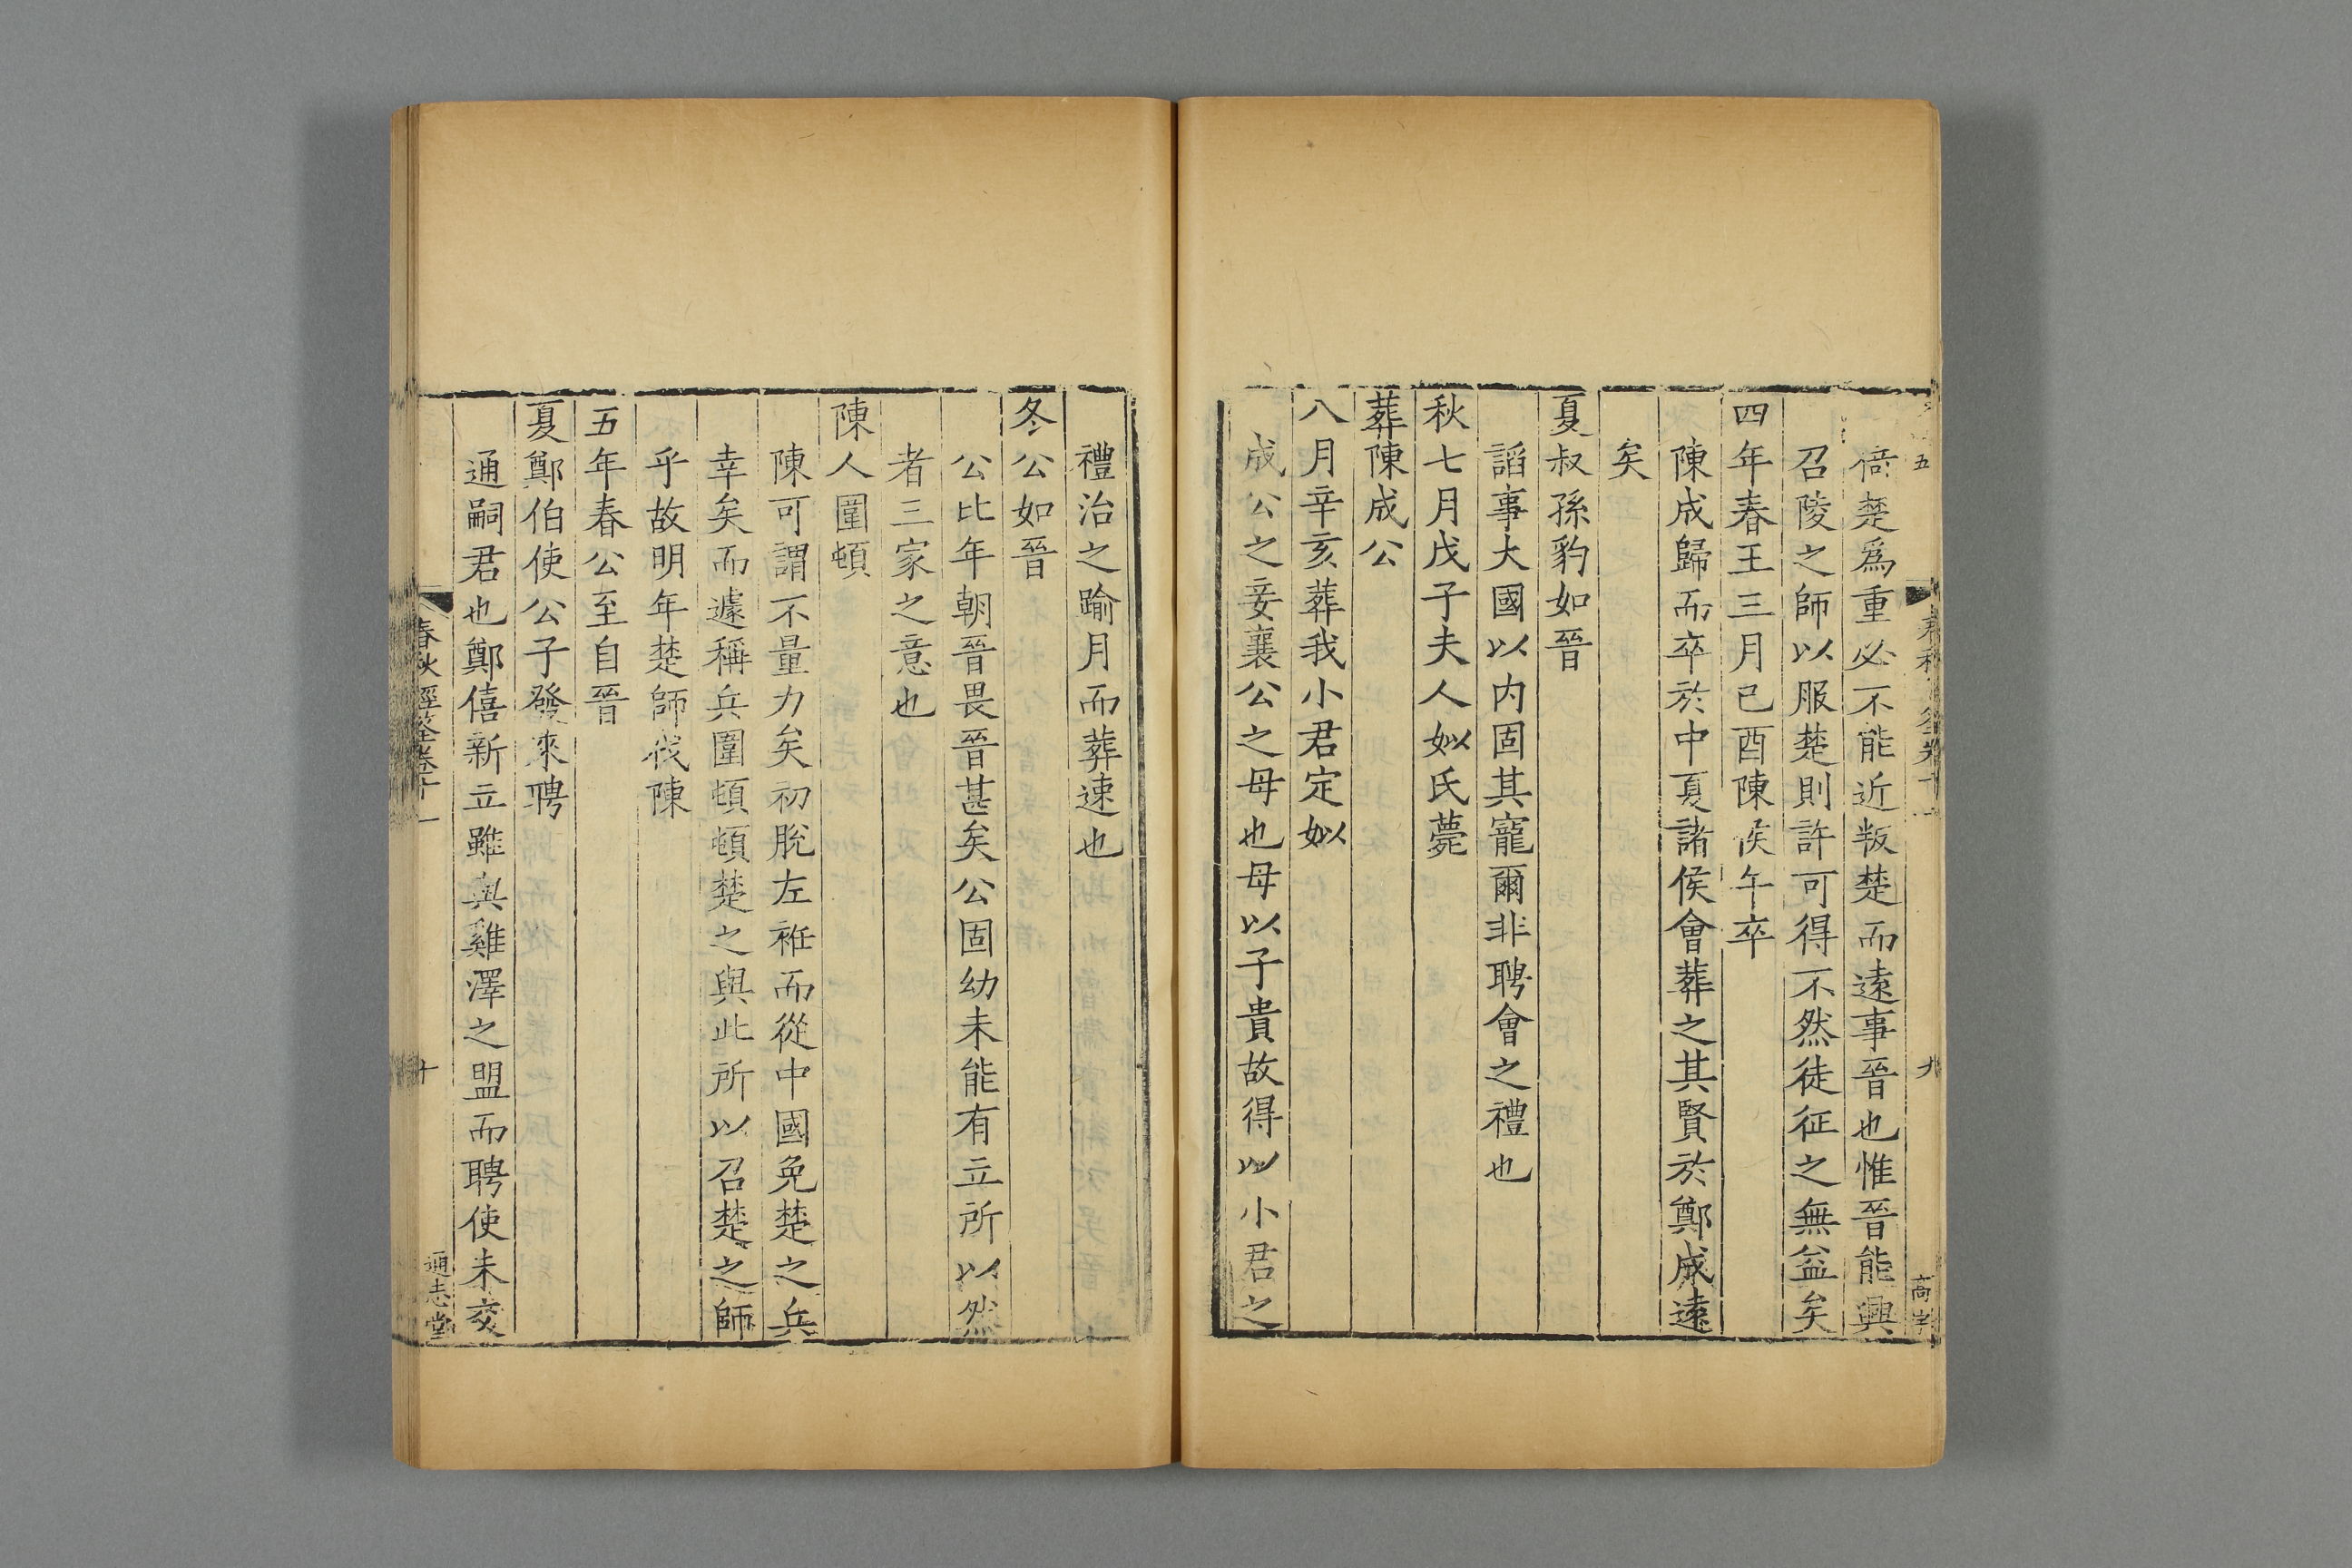 倍楚爲重必不能近叛楚而遠事晉也惟晉能興
召陵之師以服楚則許可得不然徒征之無益矣
四年春王三月己酉陳侯午卒
陳成歸而卒於中夏諸侯會葬之其賢於鄭成遠
矣
夏叔孫豹如晉
謟事大國以内固其寵爾非聘會之禮也
秋七月戊子夫人姒氏薨
葬陳成公
八月辛亥葬我小君定姒
成公之妾襄公之母也母以子貴故得以小君之
禮治之踰月而葬速也
冬公如晉
公比年朝晉畏晉甚矣公固幼未能有立所以然
者三家之意也
陳人圍頓
陳可謂不量力矣初脫左袵而從中國免楚之兵
幸矣而遽稱兵圍頓頓楚之與此所以召楚之師
乎故明年楚師伐陳
五年春公至自晉
夏鄭伯使公子發來聘
通嗣君也鄭僖新立雖與雞澤之盟而聘使未交
春秋經筌卷十一
十
通志堂